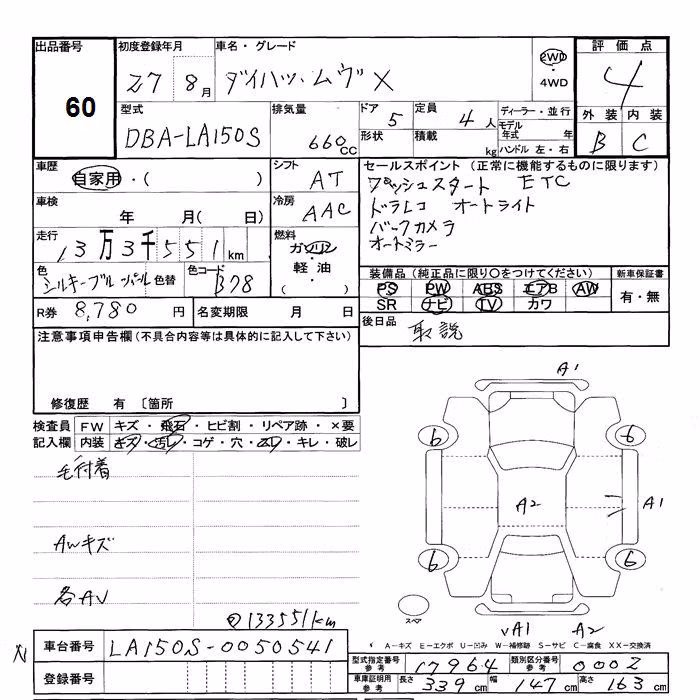 出品番号
60
初度登録年月
27 8月
車名・グレード
ダイハツ・ムヴ X
2WD
・
4WD
評価点
4
外装 内装
B C
型式
DBA-LA150S
排気量
660cc
ドア 5
形状
定員 4人
積載 kg
ディーラー・並行
モデル年式 年
ハンドル 左・右
車歴
自家用・( )
シフト
AT
セールスポイント (正常に機能するものに限ります)
プッシュスタート ETC
ドラレコ オートライト
バックカメラ
オートミラー
車検
年 月( 日)
冷房
AAC
走行
13万3千551km
燃料
ガソリン
・
軽油
( )
色
シルキーブルーパール
色替
色コード
B78
装備品 (純正品に限り○をつけてください)
新車保証書
PS PW ABS エアB AW
SR ナビ TV カワ
有・無
R券 8,780 円
名変期限 月 日
後日品
取説
注意事項申告欄 (不具合内容等は具体的に記入して下さい)
修復歴 有 〔箇所 〕
検査員
記入欄
FW キズ・飛石・ヒビ割・リペア跡・×要
内装 キズ・汚レ・コゲ・穴・スレ・キレ・破レ
毛付着
AWキズ
各AV
133551km
A1
6 6
A2 A1
6 6
スペア
VA1 A2
A-キズ E-エクボ U-凹み W-補修跡 S-サビ C-腐食 XX-交換済
車台番号
LA150S-0050541
登録番号
型式指定番号
参考
17964
類別区分番号
参考
0002
車庫証明用
参考
長さ 339cm
幅 147cm
高さ 163cm